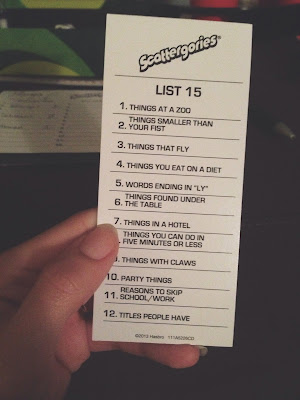 Scattergories®
LIST 15
1. THINGS AT A ZOO
2. THINGS SMALLER THAN
YOUR FIST
3. THINGS THAT FLY
4. THINGS YOU EAT ON A DIET
5. WORDS ENDING IN "LY"
6. THINGS FOUND UNDER
THE TABLE
7. THINGS IN A HOTEL
THINGS YOU CAN DO IN
FIVE MINUTES OR LESS
THINGS WITH CLAWS
10. PARTY THINGS
11. REASONS TO SKIP
SCHOOL/WORK
12. TITLES PEOPLE HAVE
Hasbro